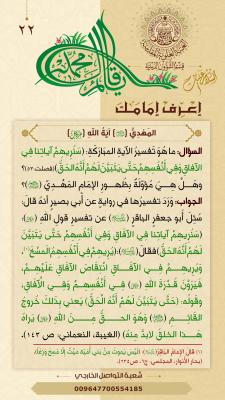 ٢٢
قائم آل محمد
اِعْرِفْ إِمَامَكَ
المَهْديُّ آيَةُ اللهِ
السؤال: ما هُوَ تفسيرُ الآيةِ المباركةِ: (سَنُرِيهِمْ آيَاتِنَا فِي
الآفَاقِ وَفِي أَنْفُسِهِمْ حَتَّىٰ يَتَبَيَّنَ لَهُمْ أَنَّهُ الحَقُّ) (فصلت: ٥٣)؟
وهَلْ هِيَ مُؤَوَّلةٌ بِظُهورِ الإمامِ المَهْديِّ؟
الجواب: وَرَدَ تفسيرُها في روايةٍ عن أبي بصيرٍ أنه قالَ:
سُئِلَ أبو جعفرٍ الباقر عن تفسيرِ قولِ اللهِ: (
سَنُرِيهِمْ آيَاتِنَا فِي الآفَاقِ وَفِي أَنْفُسِهِمْ حَتَّىٰ يَتَبَيَّنَ
لَهُمْ أَنَّهُ الحَقُّ) فَقالَ: (يُرِيهِمْ فِي أَنْفُسِهِمُ المَسْخَ(١)،
وَيُرِيهِمْ فِي الآفَاقِ انْتِقَاضَ الآفَاقِ عَلَيْهِمْ،
فَيَرَوْنَ قُدْرَةَ اللهِ فِي أَنْفُسِهِمْ وَفِي الآفَاقِ،
وَقولُه: (حَتَّىٰ يَتَبَيَّنَ لَهُمْ أَنَّهُ الحَقُّ) يَعني بِذلكَ خُروجَ
القائمِ وَهُوَ الحَقُّ مِنَ اللهِ يَراهُ
هَذا الخلقُ لابدَّ مِنهُ) (الغيبة، النعماني: ص ١٤٣).
(١) قال الإمام الباقر: (لَيْسَ يَموتُ مِنْ بَني أُميّةَ مَيِّتٌ إلّا مُسِخَ وَزَغاً).
شعبة التواصل الخارجي
009647700554185